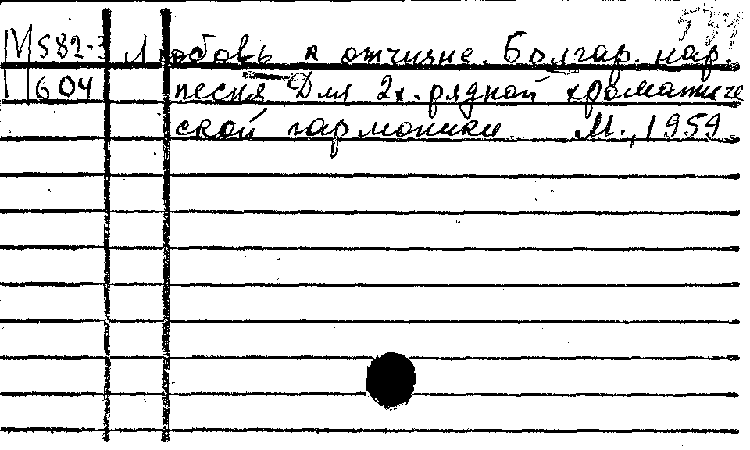 М 582-3 Любовь к отчизне. Болгар. нар.
604 песня Для 2х.рядной хроматиче
ской гармоники М., 1959